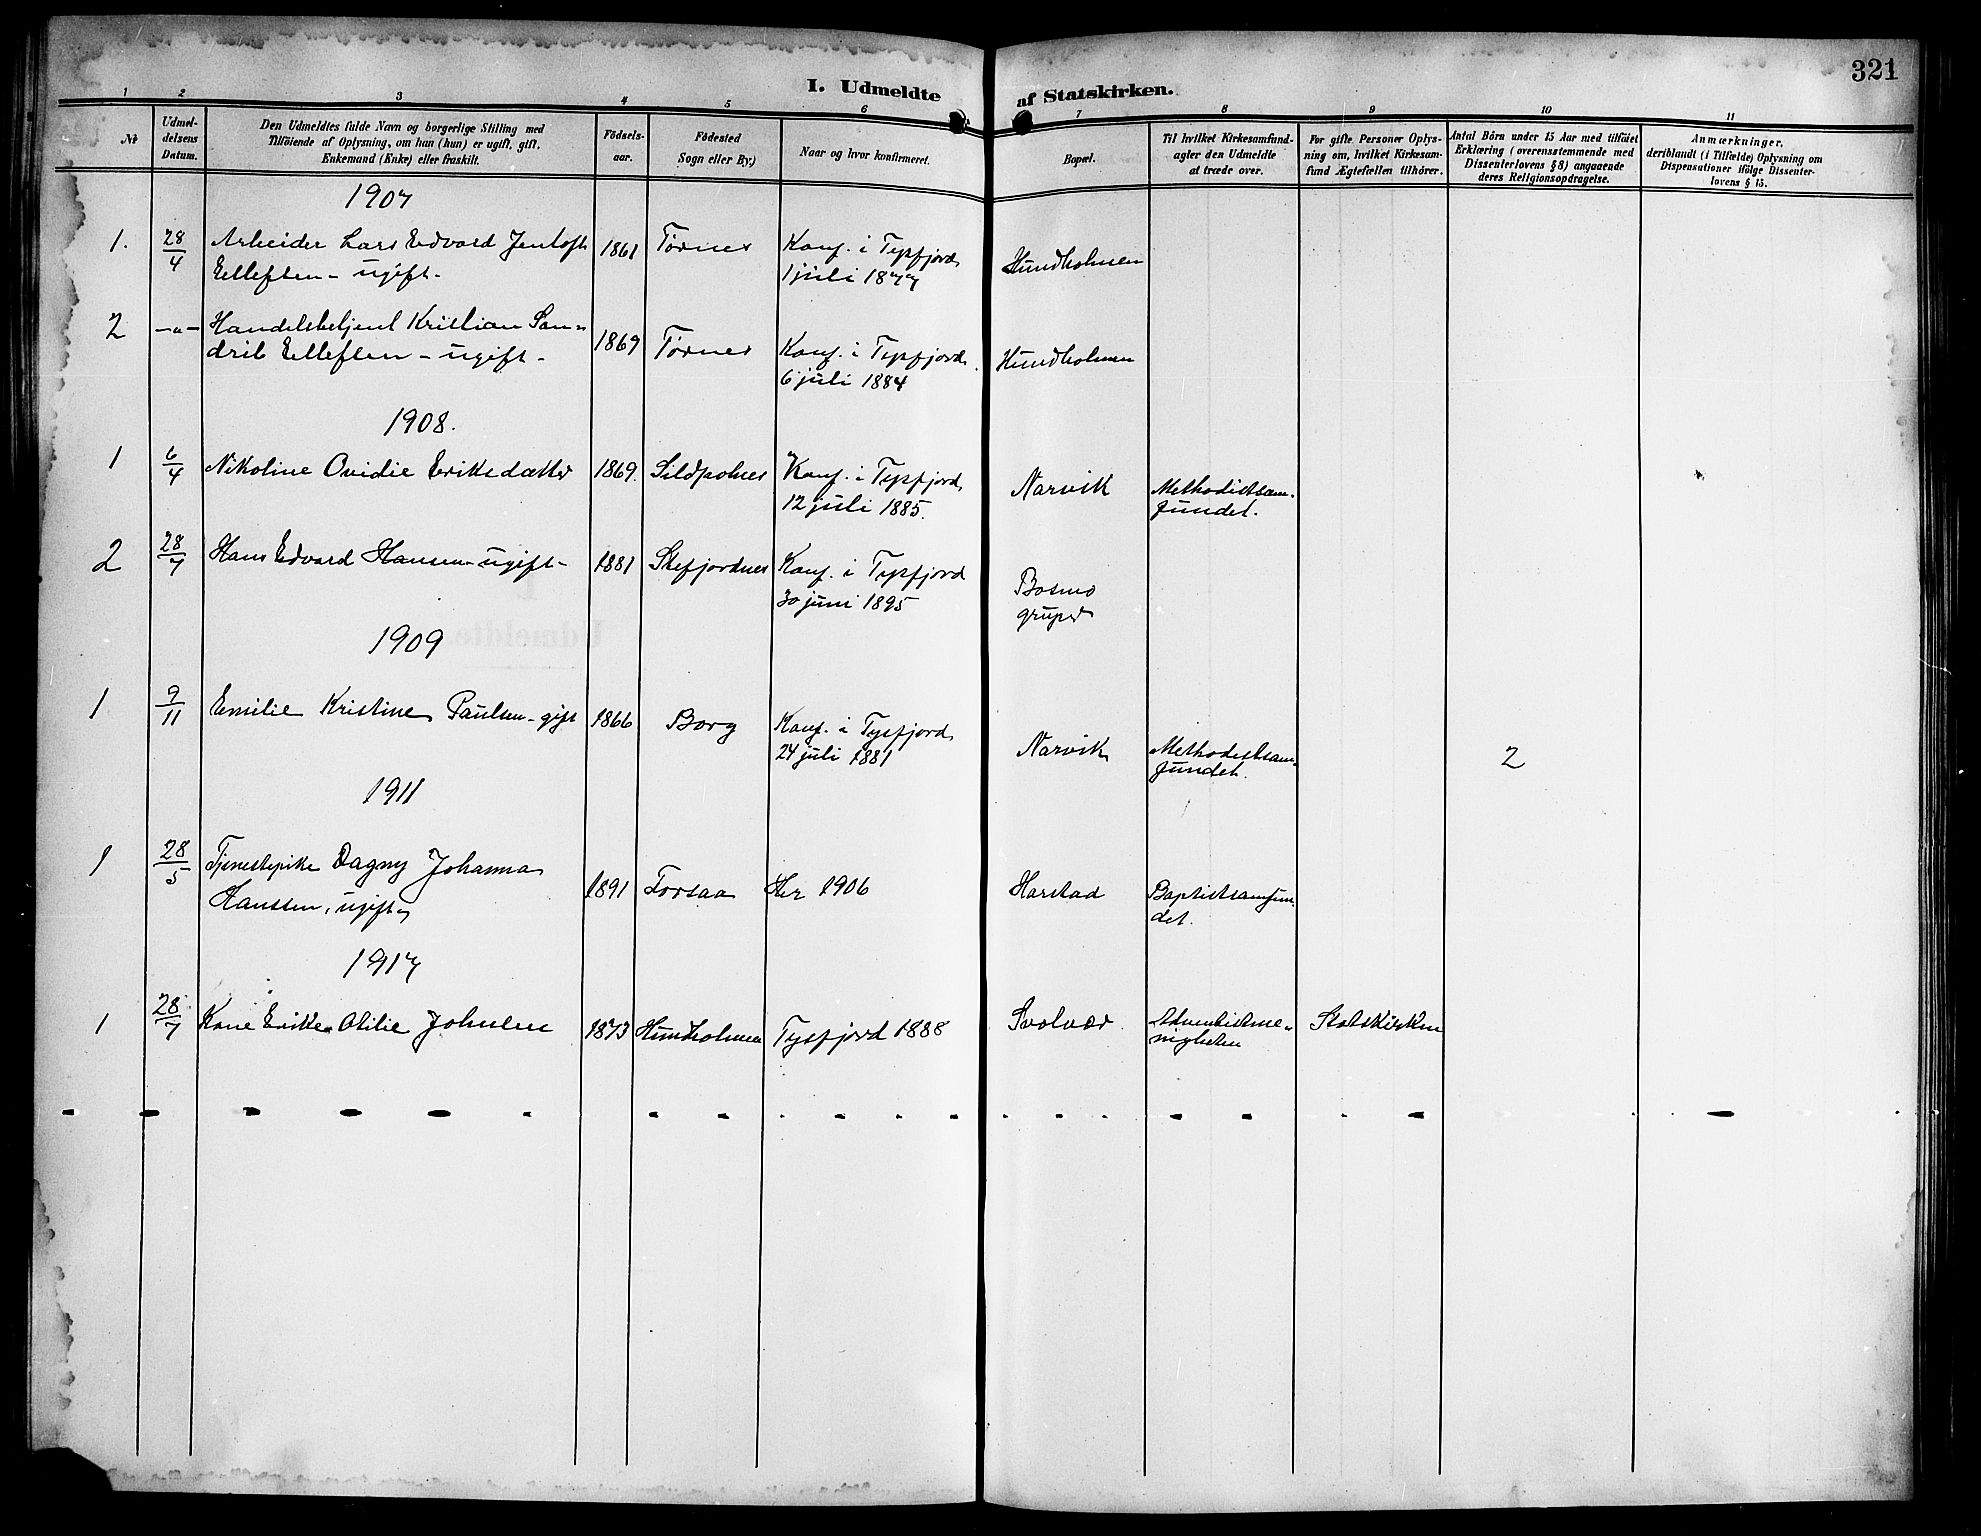 321
I. Udmeldte af Statskirken.
1 2 3 4 5 6 7 8 9 10 11
Nr
Udmeldelsens Datum.
Den Udmeldtes fulde Navn og borgerlige Stilling med
Tilföiende af Oplysning, om han (hun) er ugift, gift,
Enkemand (Enke) eller fraskilt.
Födsels-
aar.
Födested
Sogn eller By.)
Naar og hvor konfirmeret.
Bopæl.
Til hvilket Kirkesamfund-
agter den Udmeldte
at træde over.
For gifte Personer Oplys-
ning om, hvilket Kirkesam-
fund Ægtefællen tilhörer.
Antal Börn under 15 Aar med tilföiet
Erklæring (overensstemmende med
Dissenterlovens § 8) angaaende
deres Religionsopdragelse.
Anmærkninger,
deriblandt (i Tilfælde) Oplysning om
Dispensationer ifölge Dissenter-
lovens § 15.
1907
1. 28/4 Arbeider Lars Edvard Jentoft 1861 Tørnes Konf. i Tysfjord Hundholmen
Elleftsen - ugift - 1 juli 1877
2 -"- Handelsbetjent Kristian San- 1869 Tørnes Konf. i Tysfjord Hundholmen
drik Elleftsen - ugift - 6 juli 1884
1908.
1 6/4 Nikoline Ovidie Eriksdatter 1869. Sildpolnes Konf. i Tysfjord Narvik Methodistsam-
12 juli 1885. fundet.
2 28/7 Hans Edvard Hansen - ugift - 1881 Skefjordnes Konf. i Tysfjord Bosmo
30 juni 1895 gruper
1909
1 9/11 Emilie Kristine Paulsen - gift 1866 Borg Konf. i Tysfjord Narvik Methodistsam- 2
24 juli 1881 fundet.
1911
1 28/5 Tjenestepike Dagny Johanna
Hanssen, ugift 1891 Forsaa Her 1906 Harstad Baptistsamfun-
det.
1917
1 28/7 Kone Erikka Otilie Johnsen 1873 Hundholmen Tysfjord 1888 Svolvær. Adventistme- Statskirken
nigheten